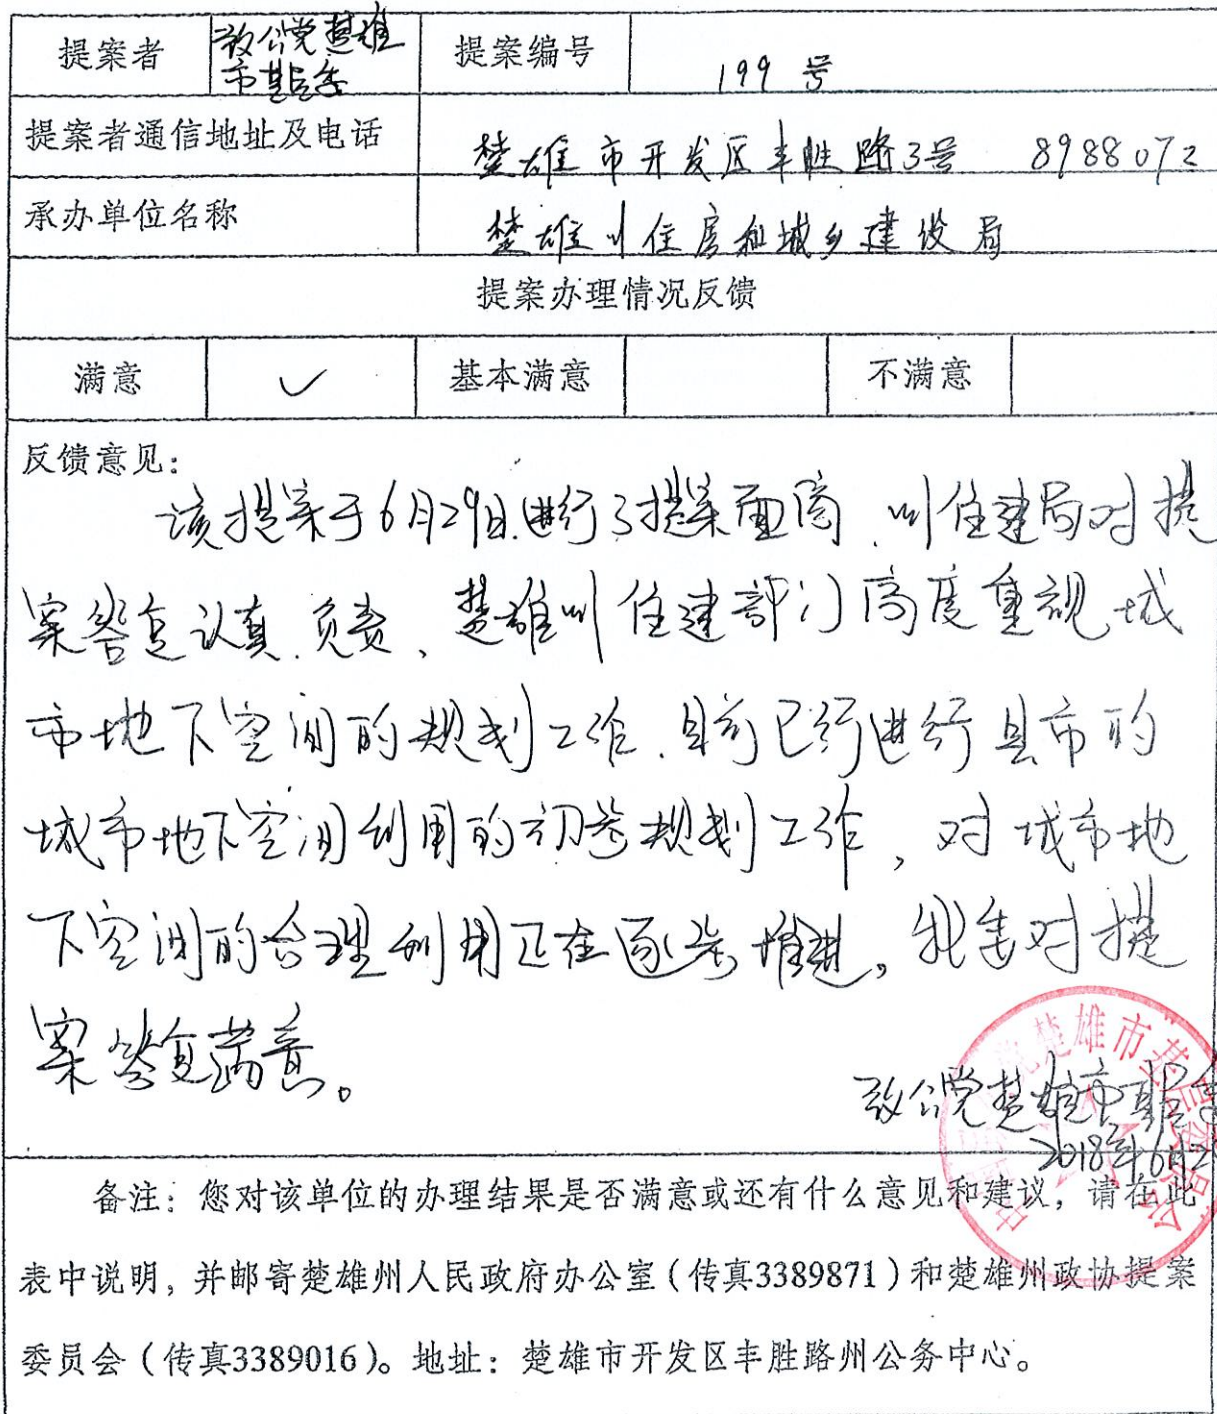 提案者 致公党楚雄 提案编号 199 号
市基层委
提案者通信地址及电话 楚雄市开发区丰胜路3号 8988072
承办单位名称 楚雄州住房和城乡建设局
提案办理情况反馈
满意 ✓ 基本满意 不满意
反馈意见：
该提案于6月29日进行了提案面商，州住建局对提
案答复认真、负责、楚雄州住建部门高度重视城
市地下空间的规划工作，目前已行进行县市的
城市地下空间利用的初步规划工作，对城市地
下空间的合理利用正在逐步推进。我委对提
案答复满意。
致公党楚雄市基层委
2018年6月2
楚雄市基层委员
备注：您对该单位的办理结果是否满意或还有什么意见和建议，请在此
表中说明，并邮寄楚雄州人民政府办公室（传真3389871）和楚雄州政协提案
委员会（传真3389016）。地址：楚雄市开发区丰胜路州公务中心。